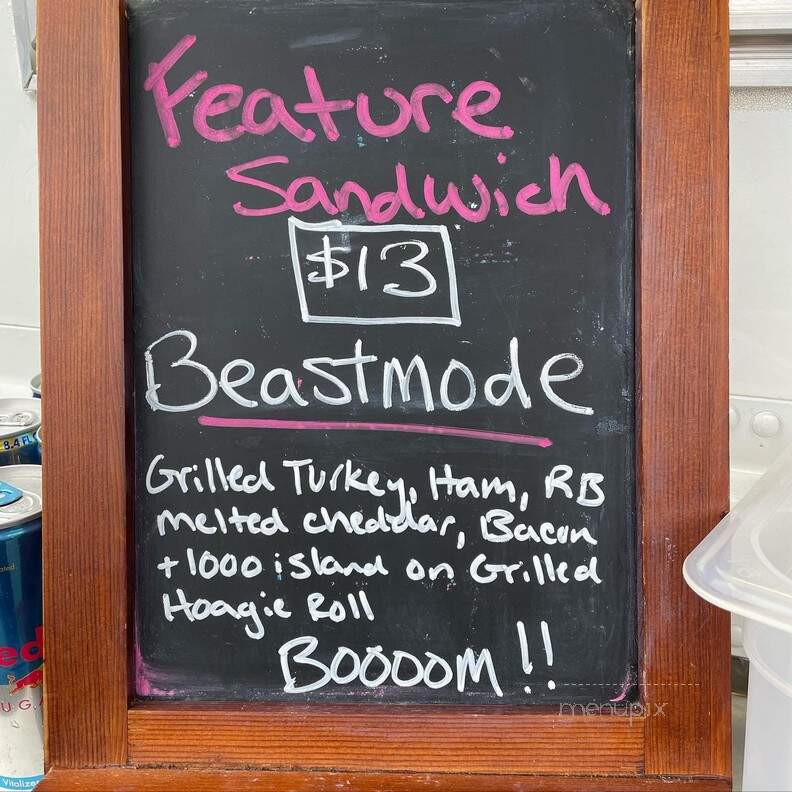 Feature
Sandwich
$13
Beastmode
Grilled Turkey, Ham, RB
melted cheddar, Bacon
+ 1000 island on Grilled
Hoagie Roll
BOOOOM!!
menupix
8.4 FL
ed
U.G.
Vitalize